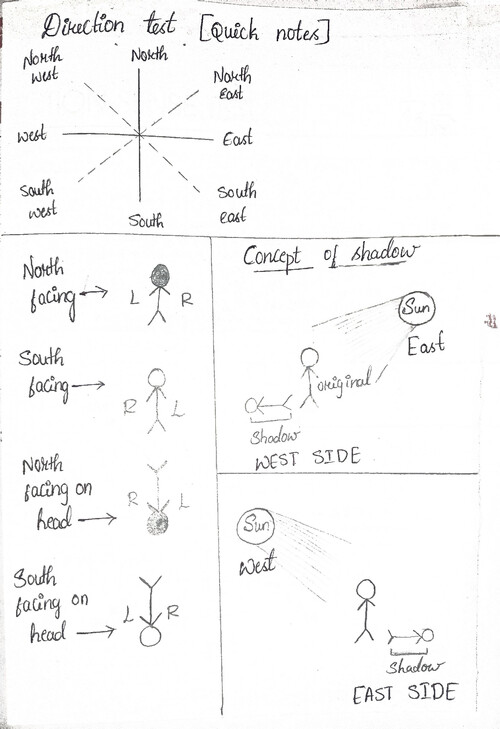 Direction test [Quick notes]
North
west
North
North
East
west
East
South
west
South
South
east
North
facing
L R
South
facing
R L
North
facing on
head
R L
South
facing on
head
L R
Concept of shadow
Sun
East
original
Shadow
WEST SIDE
Sun
West
Shadow
EAST SIDE